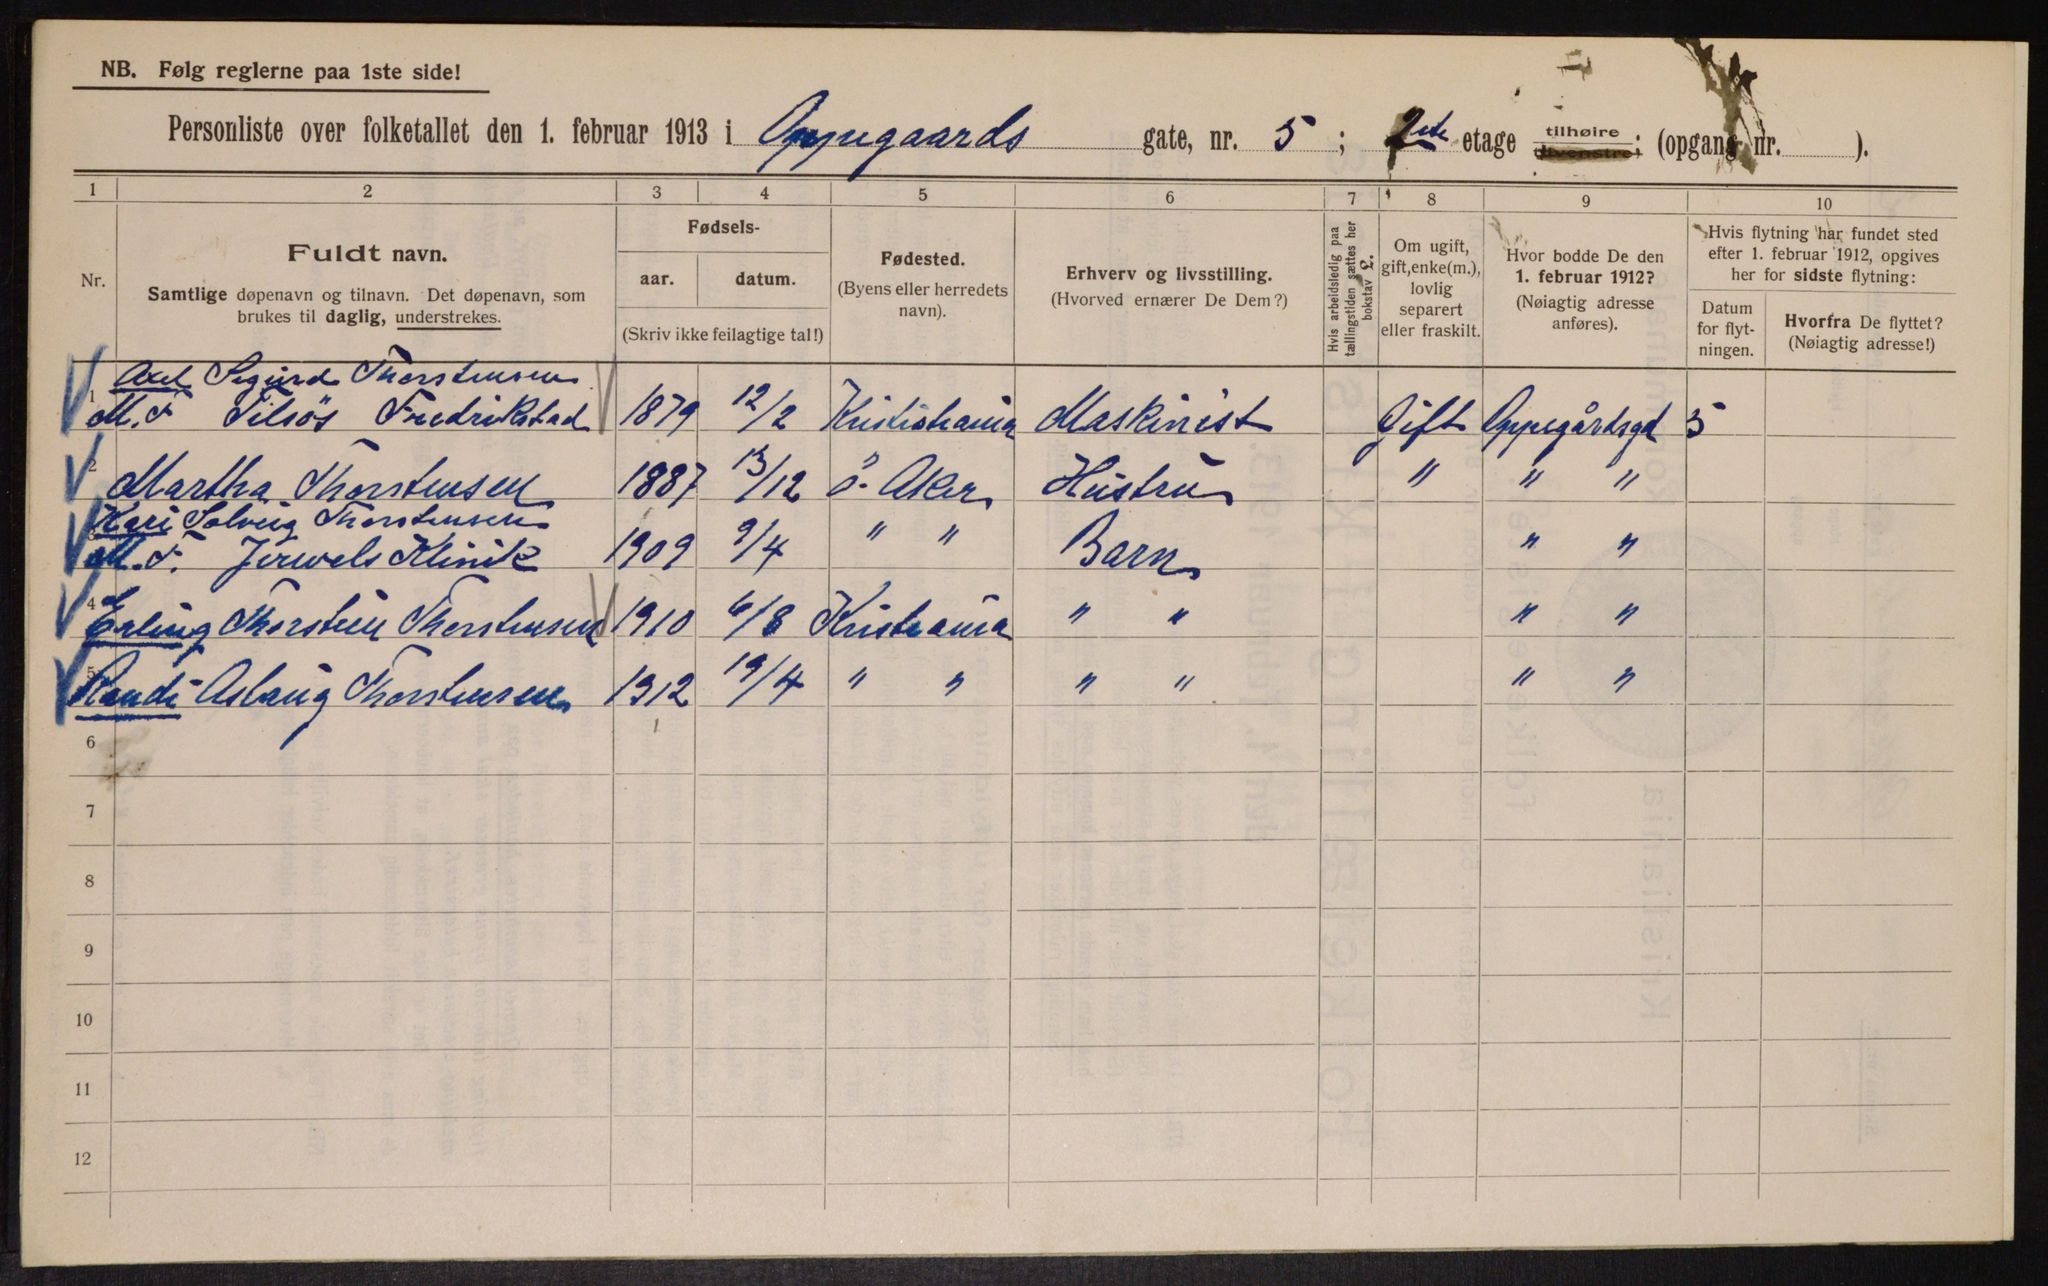 NB. Følg reglerne paa 1ste side!
Personliste over folketallet den 1. februar 1913 i Oppegaards gate, nr. 5 ; 2ete etage tilhøire tilvenstre; (opgang nr. ).
1 2 3 4 5 6 7 8 9 10
Nr.
Fuldt navn.
Samtlige døpenavn og tilnavn. Det døpenavn, som
brukes til daglig, understrekes.
Fødsels-
aar. datum.
(Skriv ikke feilagtige tal!)
Fødested.
(Byens eller herredets
navn).
Erhverv og livsstilling.
(Hvorved ernærer De Dem?)
Hvis arbeidsledig paa
tællingstiden sættes her
bokstav L.
Om ugift,
gift, enke(m.),
lovlig
separert
eller fraskilt.
Hvor bodde De den
1. februar 1912?
(Nøiagtig adresse
anføres).
Hvis flytning har fundet sted
efter 1. februar 1912, opgives
her for sidste flytning:
Datum
for flyt-
ningen.
Hvorfra De flyttet?
(Nøiagtig adresse!)
Axel Sigurd Thorstensen
1 M. F. Filsös Fredrikstad 1879 12/2 Kristiania Maskinist Gift Oppegårdsgd 5
2 Martha Thorstensen 1887 13/12 ö. Aker Hustru " " "
Kari Solveig Thorstensen
3 M. F. Jerwels Klinik 1909 9/4 " " Barn " "
4 Erling Thorstein Thorstensen 1910 6/8 Kristiania " " " "
5 Randi Aslaug Thorstensen 1912 19/4 " " " " " "
6
7
8
9
10
11
12